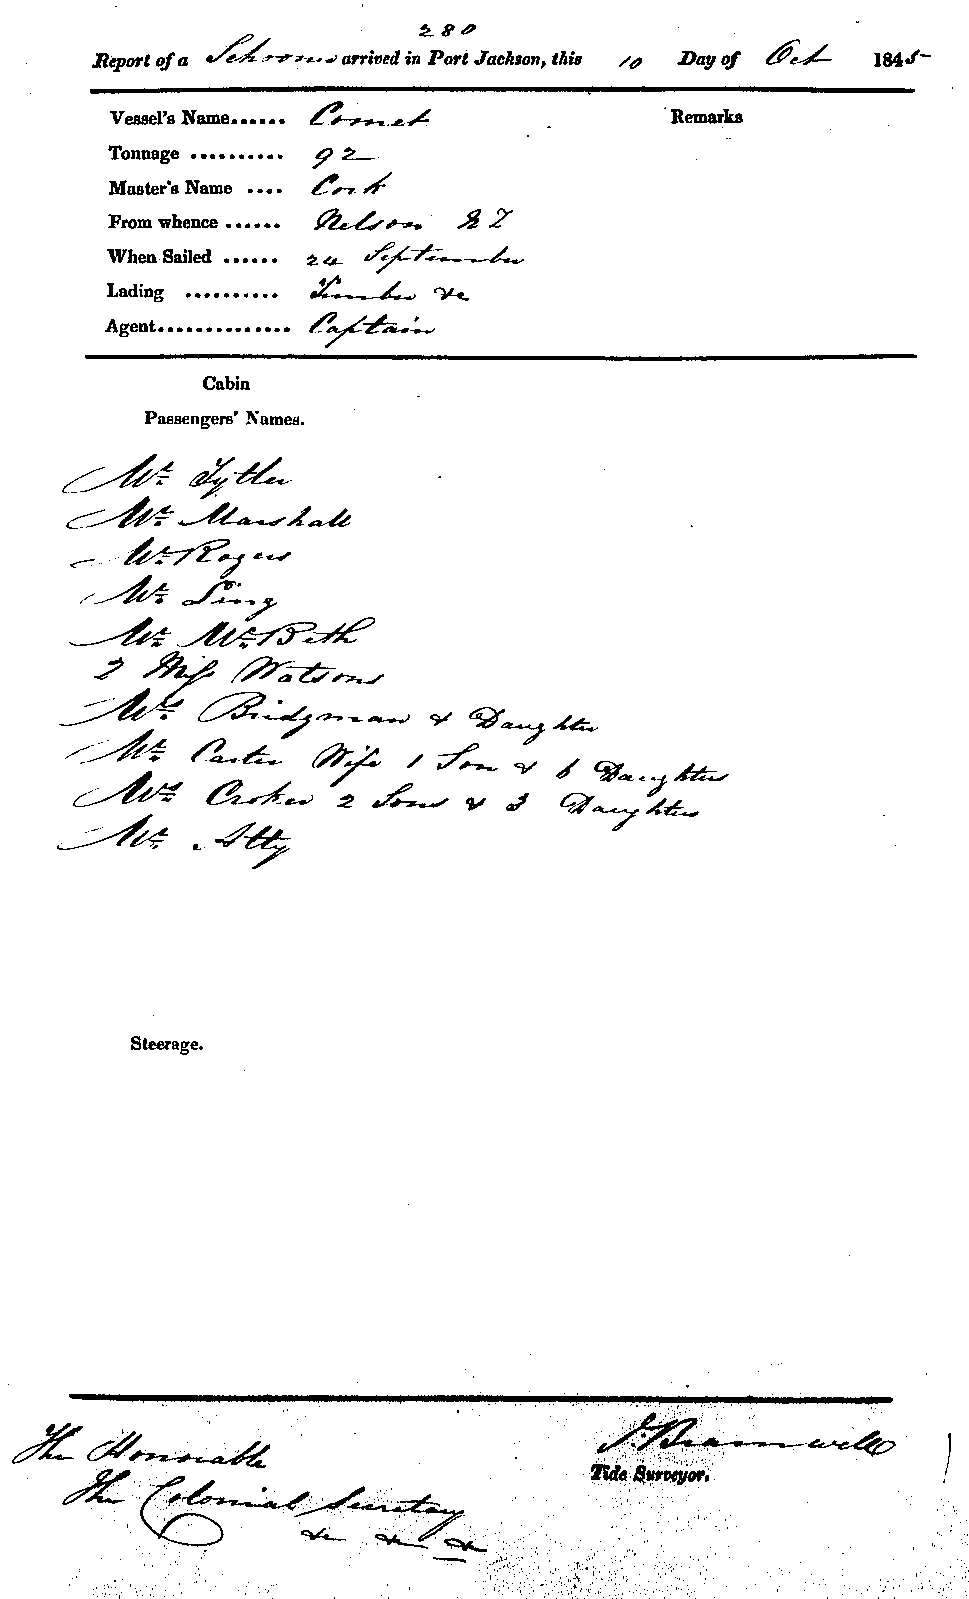 280
Report of a Schooner arrived in Port Jackson, this 10 Day of Oct 1845
Vessel's Name...... Comet
Remarks
Tonnage .......... 92
Master's Name .... Cork
From whence ...... Nelson NZ
When Sailed ...... 24 September
Lading .......... Timber &c
Agent.............. Captain
Cabin
Passengers' Names.
Mr Tytler
Mr Marshall
Mr Rogers
Mr Ling
Mr McBeth
2 Miss Watsons
Mrs Bridgman & Daughter
Mr Carter Wife 1 Son & 6 Daughters
Mrs Croker 2 Sons & 3 Daughters
Mr Atty
Steerage.
The Honorable
The Colonial Secretary
&c &c &c
J. Bramwell
Tide Surveyor.